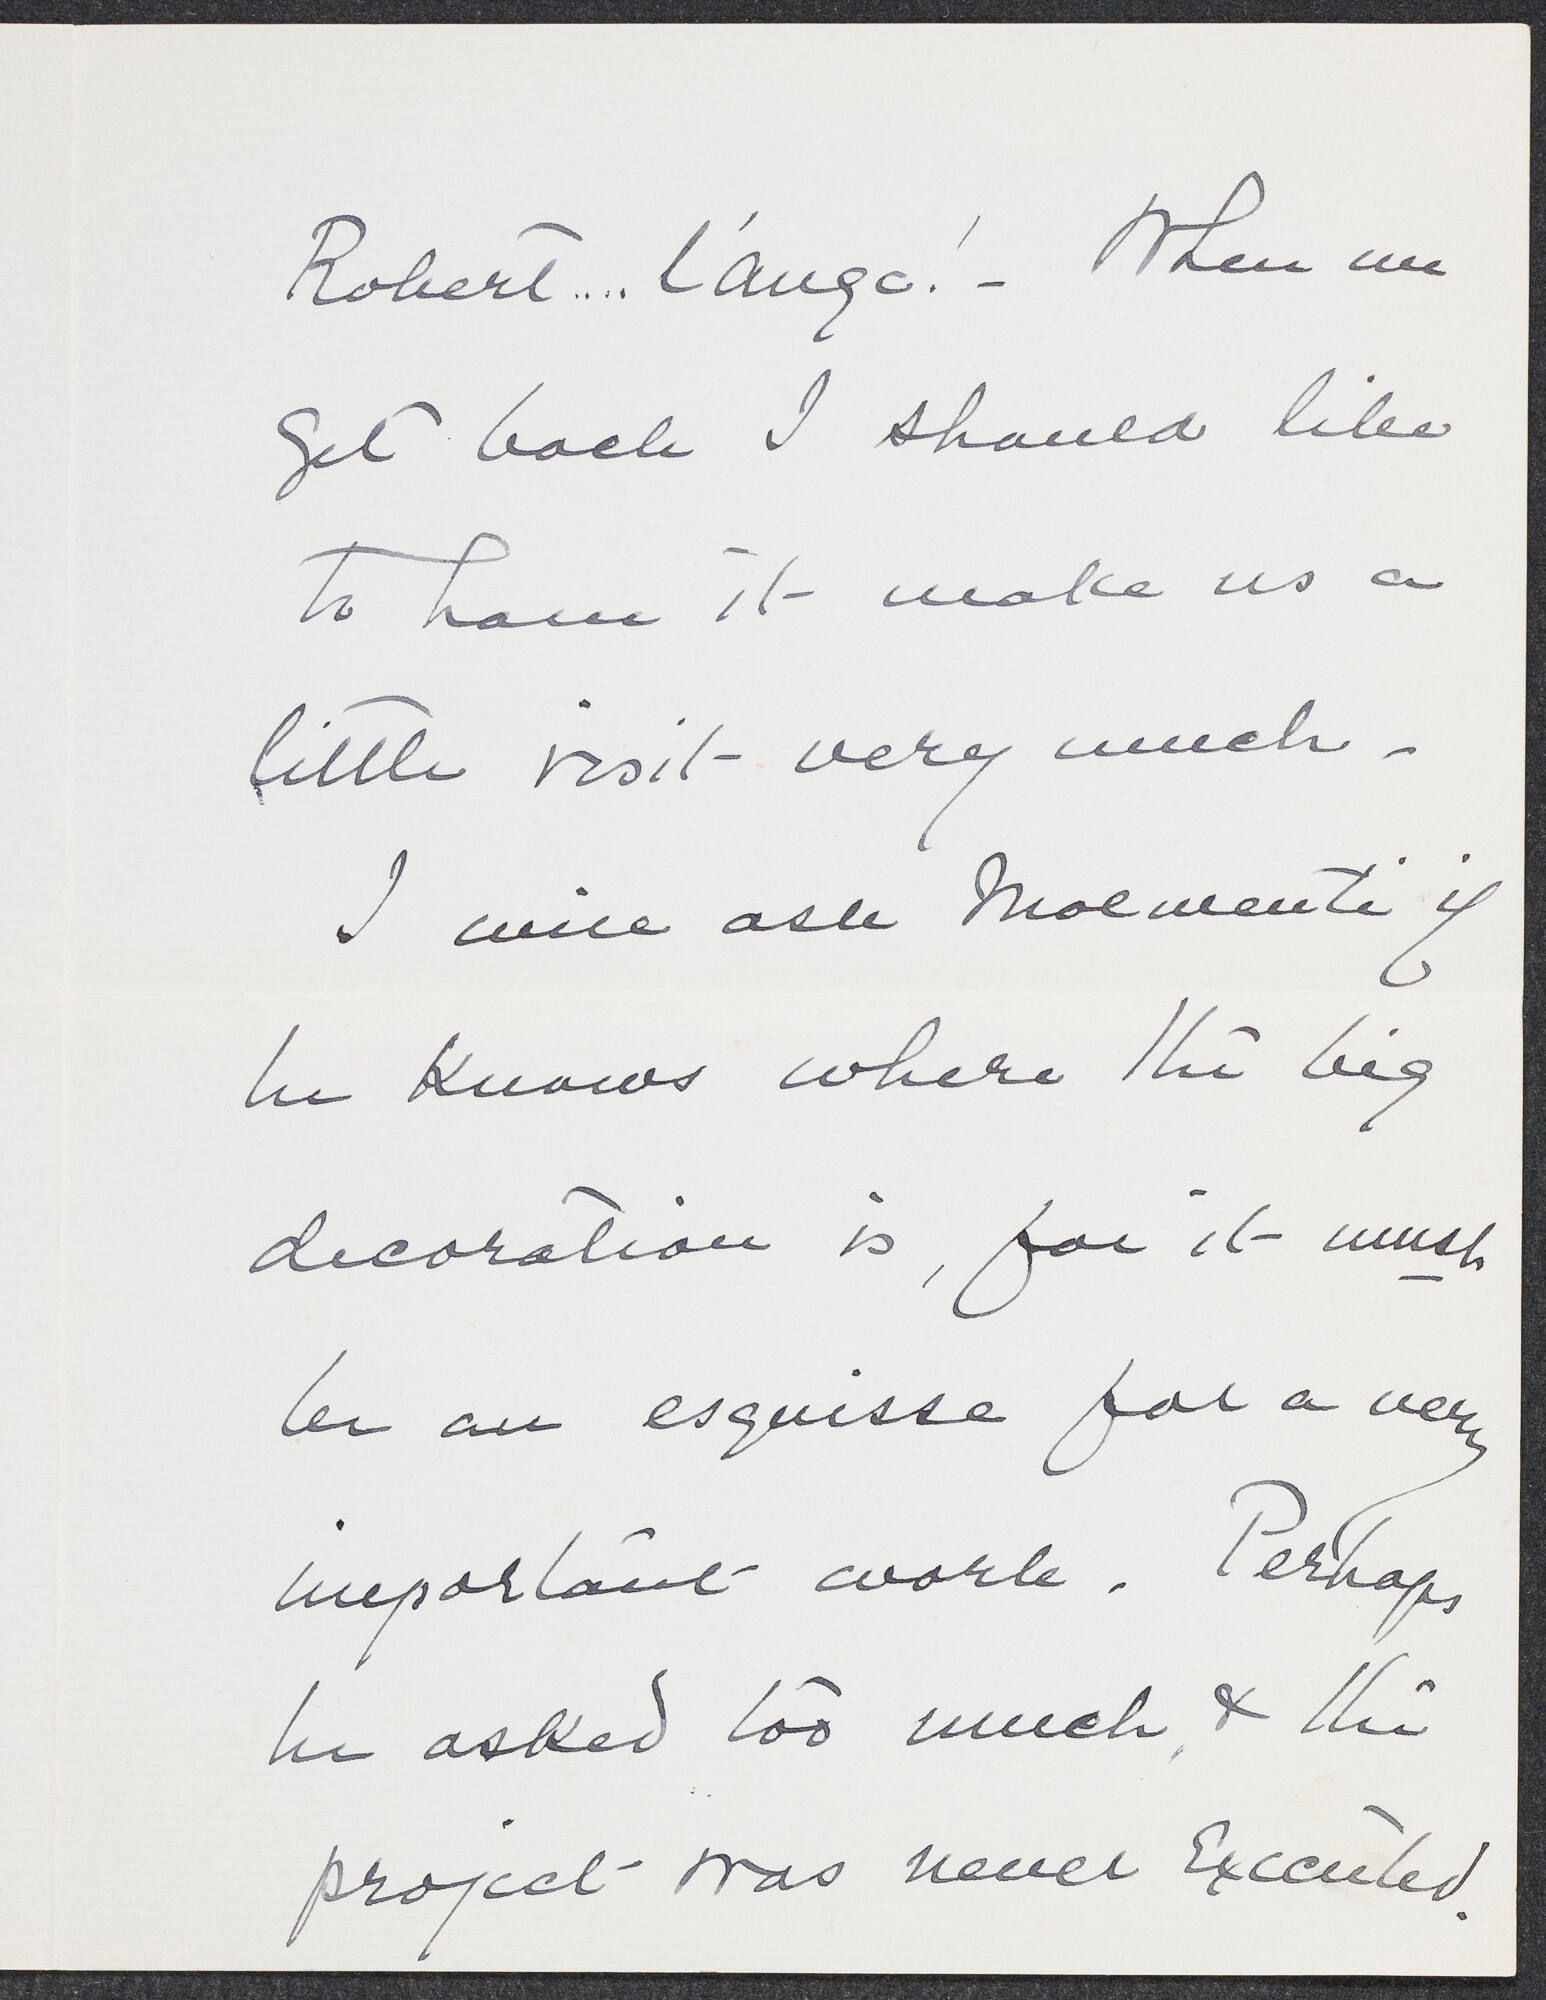 Robert.... L'Ange! - When we
get back I should like
to have it make us a
little visit very much -
I will ask Molmenti if
he knows where the big
decoration is, for it must
be an esquisse for a very
important work. Perhaps
he asked too much, & the
project was never executed.